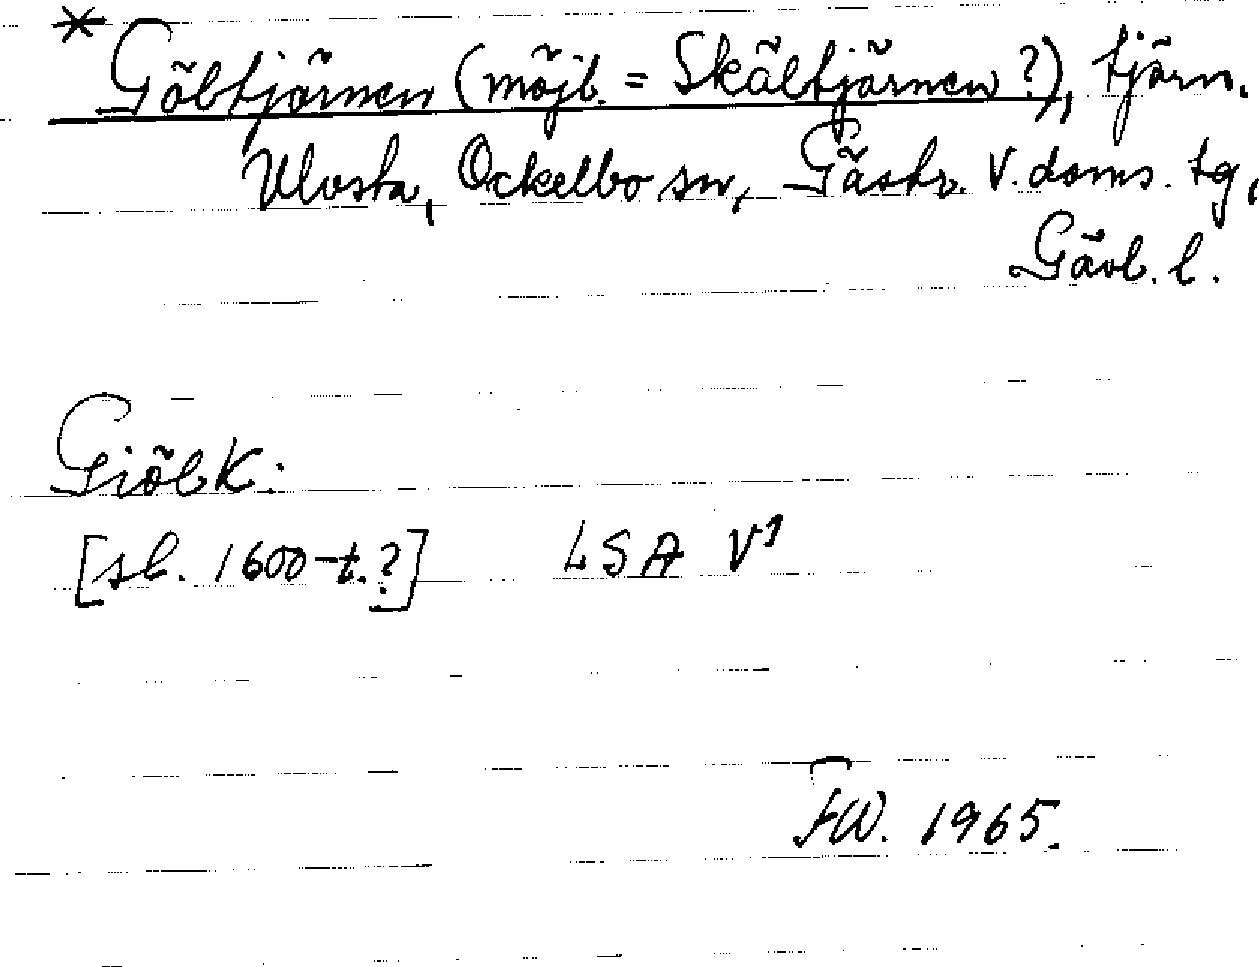 * Göltjärnen (möjl. = Skältjärnen?), tjärn.
Ulvsta, Ockelbo sn, Gästr. V. doms. tg,
Gävl. l.
Giöl K:
[sl. 1600-t.?] LSA V¹
FW. 1965.